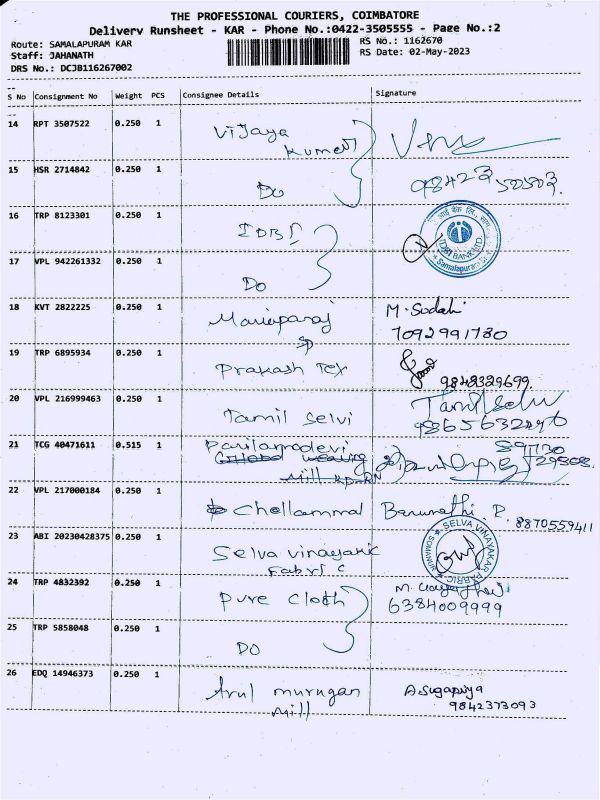 THE PROFESSIONAL COURIERS, COIMBATORE
Delivery Runsheet - KAR - Phone No.:0422-3505555 - Page No.:2
Route: SAMALAPURAM KAR
RS No.: 1162670
Staff: JAHANATH
RS Date: 02-May-2023
DRS No.: DCJB116267002
S No Consignment No Weight PCS Consignee Details Signature
14 RPT 3507522 0.250 1 Vijaya Kumar
15 HSR 2714842 0.250 1 Do 98423 50503.
16 TRP 8123301 0.250 1 IDBI
IDBI BANK LTD. Samalapuram
17 VPL 942261332 0.250 1 Do
18 KVT 2822225 0.250 1 Mariaparaj M. Sudahi
7092991780
19 TRP 6895934 0.250 1 Prakash Tex 9843329699.
20 VPL 216999463 0.250 1 Tamil Selvi Tamil Selvi
9865632496
21 TCG 40471611 0.515 1
Mill
22 VPL 217000184 0.250 1 Chellammal P
8870559411
23 ABI 20230428375 0.250 1 Selva Vinayakk
Fabric
SELVA VINAYAKAR FABRIC SOMANUR
24 TRP 4832392 0.250 1 Pure Cloth M.
6384009999
25 TRP 5858048 0.250 1 Do
26 EDQ 14946373 0.250 1 Arul murugan A. Sugapriya
mill 9842373093